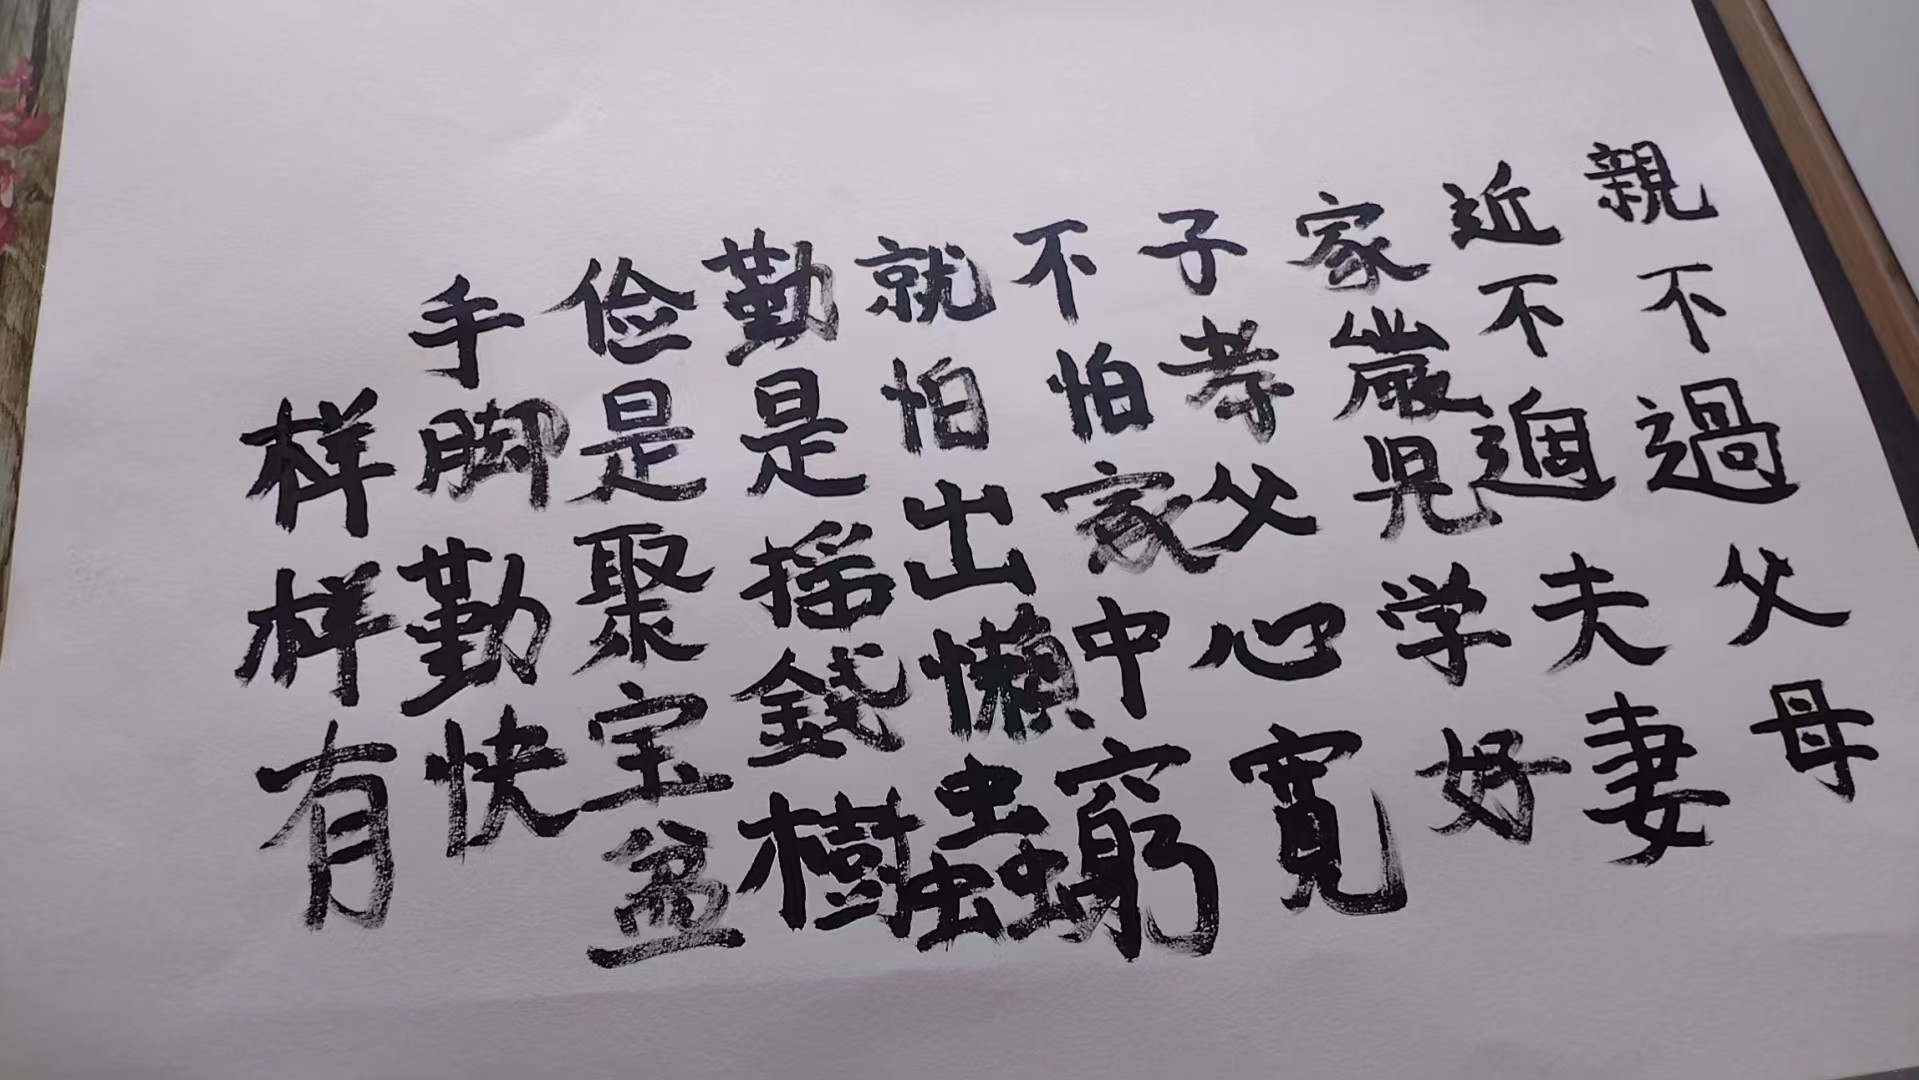 親不過父母
近不過夫妻
家嚴児学好
子孝父心寬
不怕家中窮
就怕出懶蟲
勤是摇錢樹
俭是聚宝盆
手脚勤快
样样有